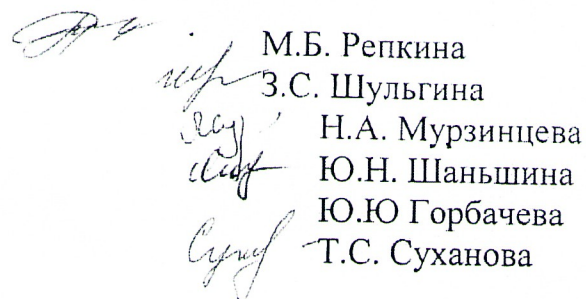 М.Б. Репкина
З.С. Шульгина
Н.А. Мурзинцева
Ю.Н. Шаньшина
Ю.Ю Горбачева
Т.С. Суханова